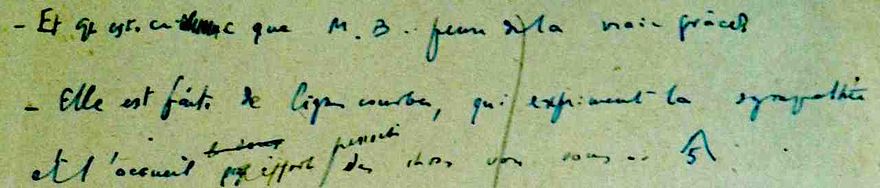 - Et qu'est-ce donc que M. B.. pense de la vraie grâce?
- Elle est faite de lignes courbes, qui expriment la sympathie
et l'accueil effort des choses vers nous... 5